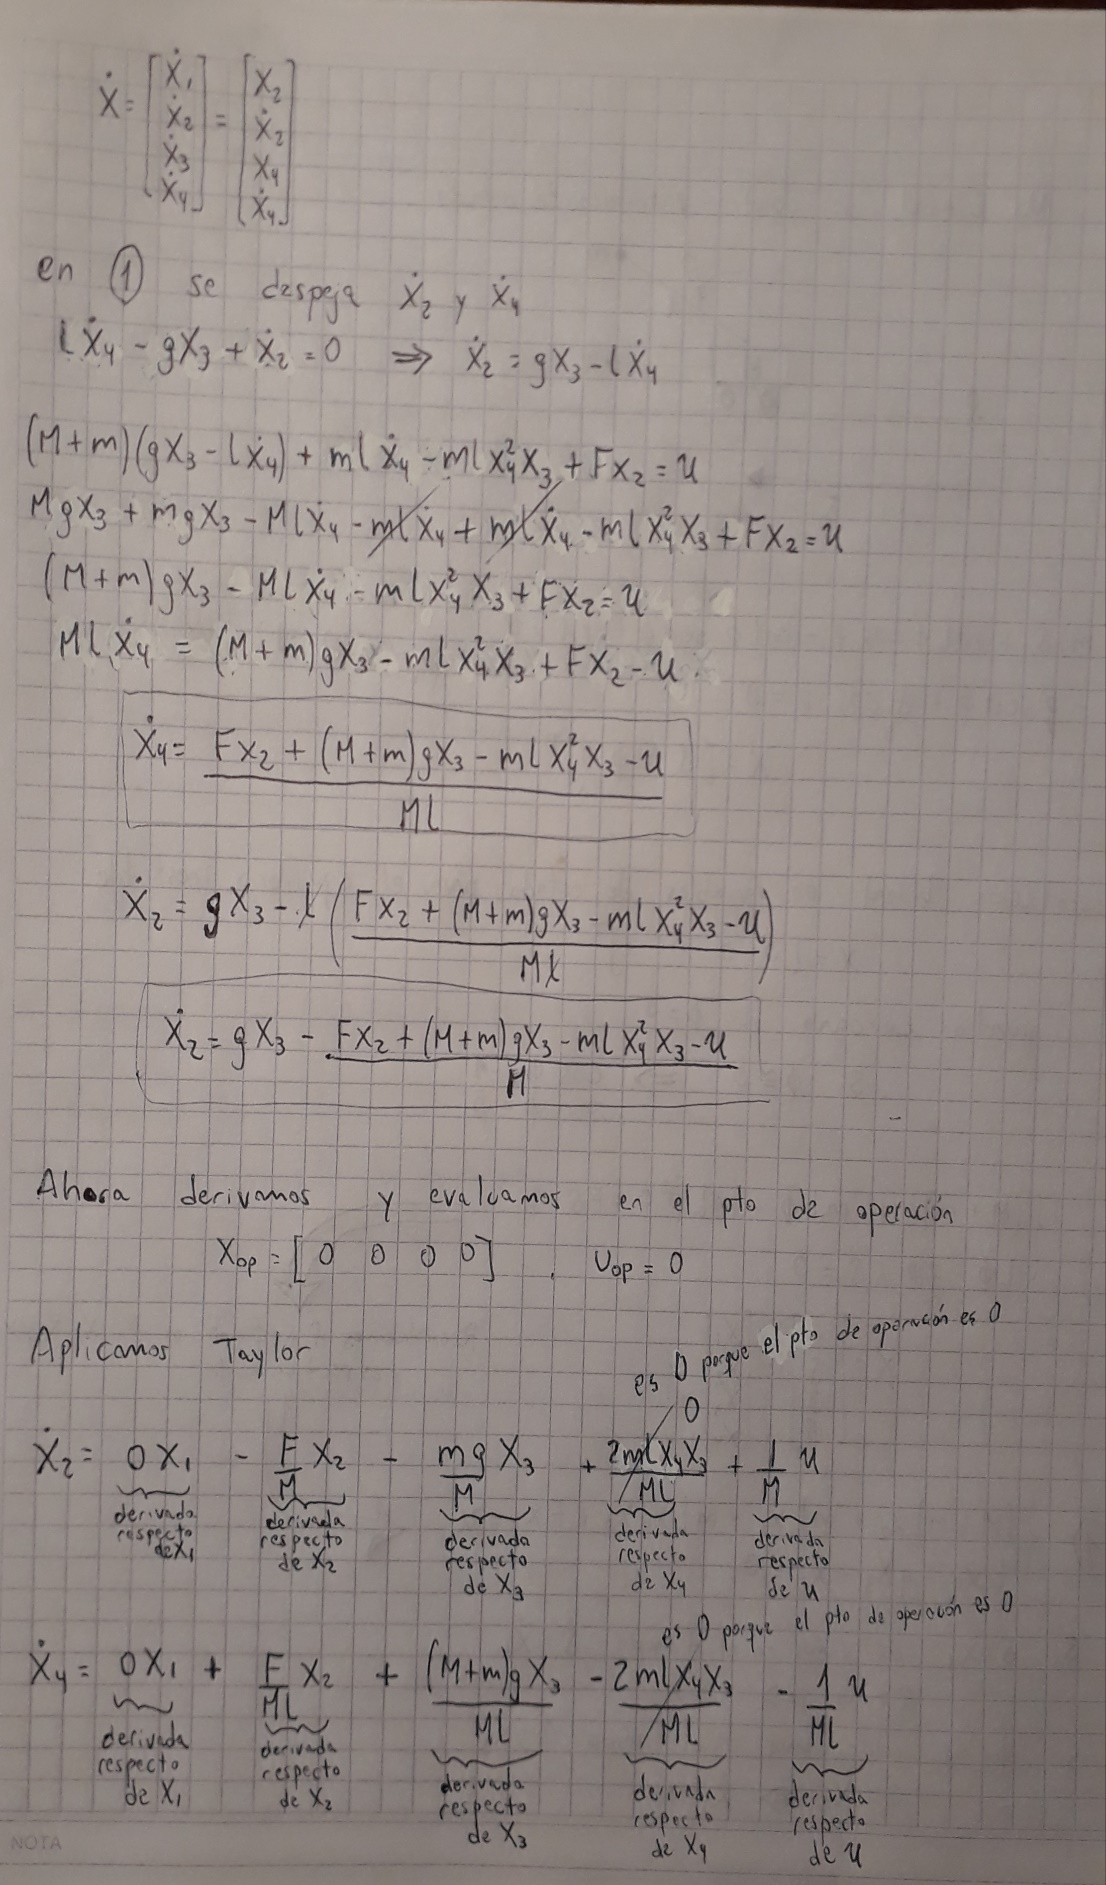 Ẋ = [Ẋ₁ Ẋ₂ Ẋ₃ Ẋ₄] = [X₂ Ẋ₂ X₄ Ẋ₄]
en ① se despeja Ẋ₂ y Ẋ₄
lẊ₄ - gX₃ + Ẋ₂ = 0 ⇒ Ẋ₂ = gX₃ - lẊ₄
(M+m)(gX₃ - lẊ₄) + mlẊ₄ - mlX₄²X₃ + FX₂ = u
MgX₃ + mgX₃ - MlẊ₄ - mlẊ₄ + mlẊ₄ - mlX₄²X₃ + FX₂ = u
(M+m)gX₃ - MlẊ₄ - mlX₄²X₃ + FX₂ = u
MlẊ₄ = (M+m)gX₃ - mlX₄²X₃ + FX₂ - u
Ẋ₄ = FX₂ + (M+m)gX₃ - mlX₄²X₃ - u
Ml
Ẋ₂ = gX₃ - l (FX₂ + (M+m)gX₃ - mlX₄²X₃ - u)
Ml
Ẋ₂ = gX₃ - FX₂ + (M+m)gX₃ - mlX₄²X₃ - u
M
Ahora derivamos y evaluamos en el pto de operación
Xop = [0 0 0 0] , Uop = 0
Aplicamos Taylor
es 0 porque el pto de operación es 0
0
Ẋ₂ = 0X₁ - F/M X₂ - mg/M X₃ + 2mlX₄X₃/ML + 1/M u
derivada respecto de X₁
derivada respecto de X₂
derivada respecto de X₃
derivada respecto de X₄
derivada respecto de u
es 0 porque el pto de operación es 0
Ẋ₄ = 0X₁ + F/ML X₂ + (M+m)gX₃/ML - 2mlX₄X₃/ML - 1/ML u
derivada respecto de X₁
derivada respecto de X₂
derivada respecto de X₃
derivada respecto de X₄
derivada respecto de u
NOTA